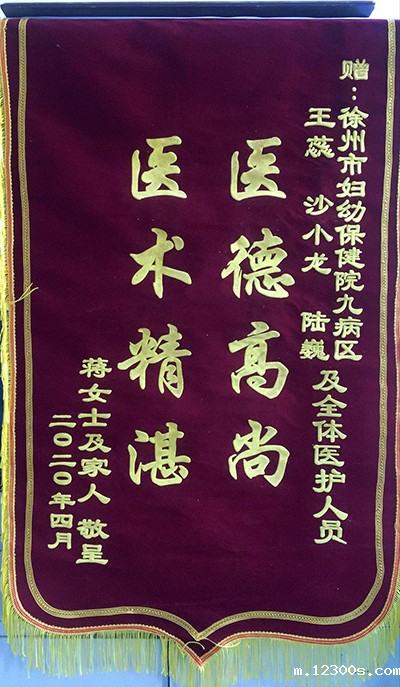 赠：徐州市妇幼保健院九病区
王蕊 沙小龙 陆巍 及全体医护人员
医德高尚
医术精湛
蒋女士及家人 敬呈
二〇二〇年四月
m.12300s.com